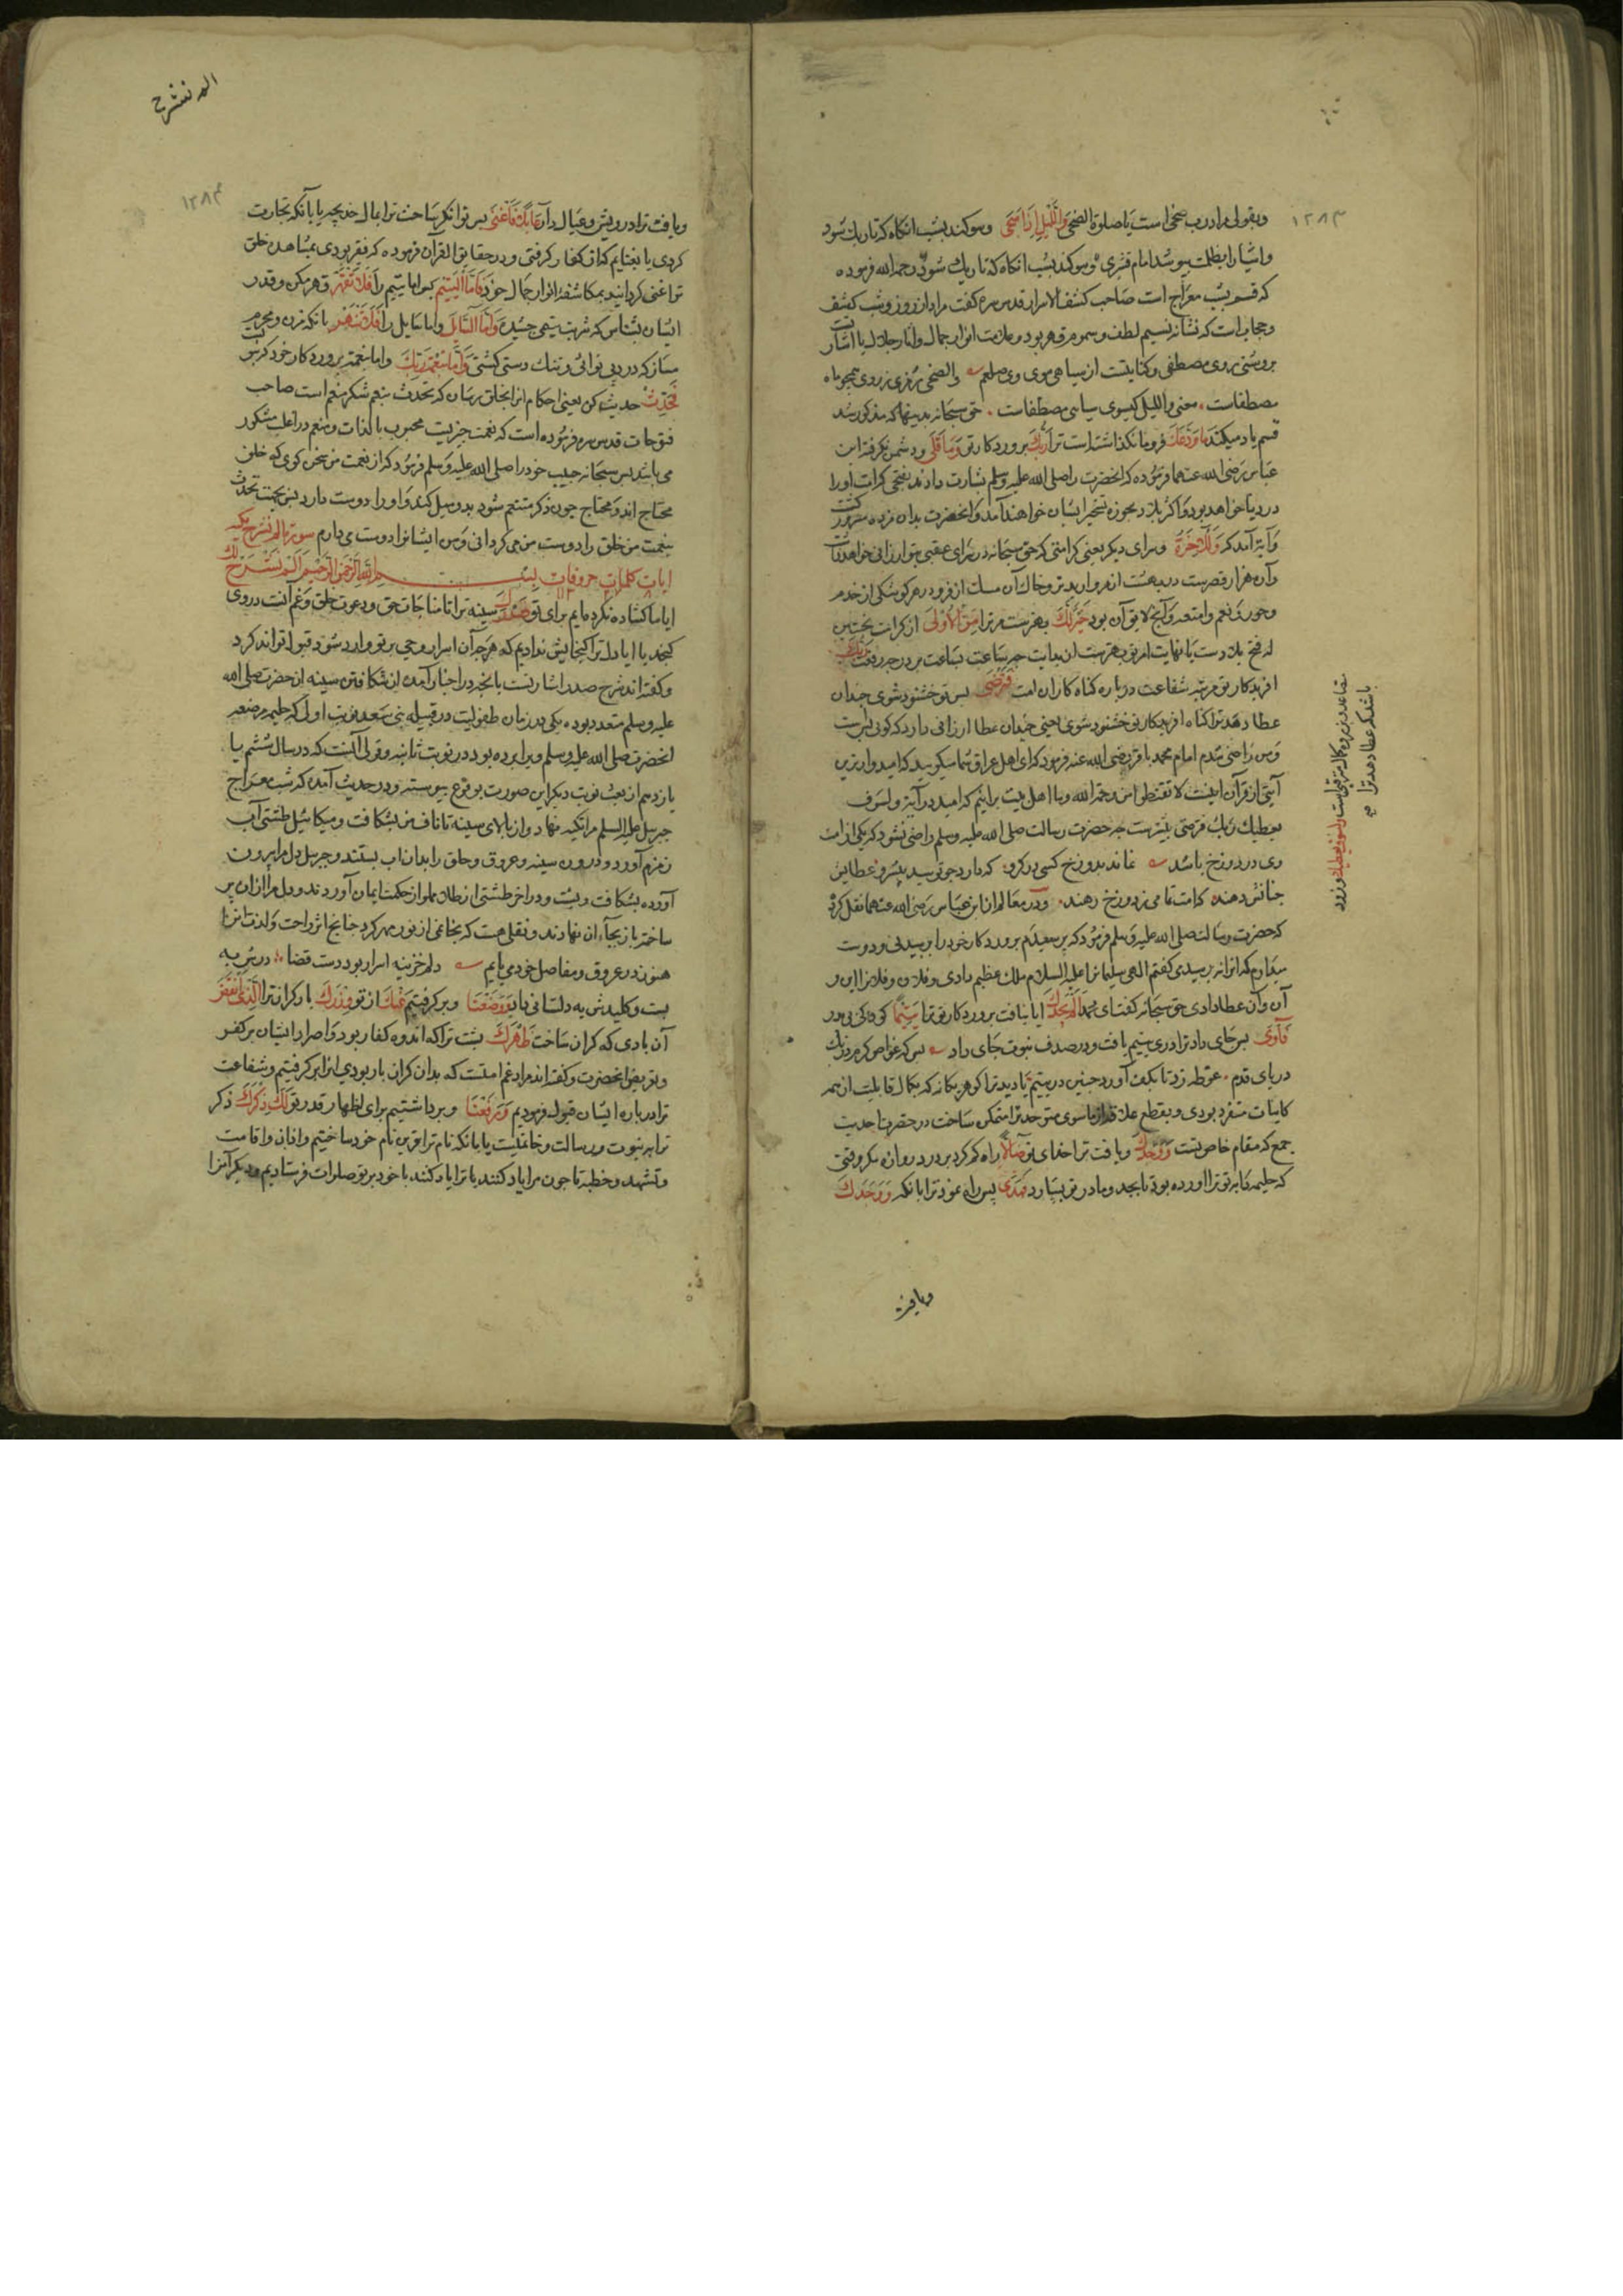 ۱۲۸۳
وبقولی مراد رب ضحی است یا صلوة الضحی وَاللَّیْلِ إِذَا سَجَی وسوکند بشب انکاه که تاریك شود
واشیا را بظلمت بپوشد امام قشیری وسوکند بشب انکاه که تاریك شود رحمه الله فرموده
که قسم بشب معراج است صاحب کشف الاسرار قدس سره کفت مراد از روز وشب کشف
وحجاب است که نشانه نسیم لطف وسموم قهر بود وعلامت انوار جمال واثار جلال یا اشارت
بروشنی روی مصطفی وکنایتست از سیاهی موی وی صلعم والضحی رمزی ز روی همچو ماه
مصطفاست معنی واللیل کیسوی سیاه مصطفاست حق سبحانه بدینها که مذکور شد
قسم یاد میکند مَا وَدَّعَكَ فرو نکذاشته است ترا رَبُّكَ پروردکار تو وَمَا قَلَی ودشمن نکرفته ابن
عباس رضی الله عنهما فرموده که انحضرت را صلی الله علیه وسلم بشارت دادند بفتحی که امت اورا
در دنیا خواهد بود واکثر بلاد بحوزه تسخیر ایشان خواهند آمد وانحضرت بدان مژده مسرور کشت
وآیة آمد که وَلَلْآخِرَةُ وسرای دیکر یعنی کرامتی که حق سبحانه در سرای عقبی بتو ارزانی خواهد داشت
وآن هزار قصرست در بهشت از مروارید تر وخاك آن مسك ازفر ودر هر کوشکی از خدم
وحور ونعم وامتعه وآنچه لایق آن بود خَیْرٌ لَكَ بهترست مر ترا مِنَ الْأُولَی از کرامت نخستین
که فتح بلادست یا نهایت امر تو بهترست از بدایت چه ساعت بساعت بر درجه رفعت
افریدکار تو مرتبه شفاعت درباره کناه کاران امت فَتَرْضَی پس تو خشنود شوی چندان
عطا دهد ترا که از افریدکار تو خشنود شوی یعنی چندان عطا ارزانی دارد که کویی بس است
ومن راضی شدم امام محمد باقر رضی الله عنه فرمود که ای اهل عراق شما میکویید که امیدوارترین
آیتی از قرآن اینست لا تقنطوا من رحمة الله وما اهل بیت برانیم که امید در آیة ولسوف
یعطیك ربك فترضی بیشترست چه حضرت رسالت صلی الله علیه وسلم راضی نشود که یکی از امت
وی در دوزخ باشد نماند بدوزخ کسی در کرو که دارد چو تو سید پیشرو عطایش
چنانش دهند که امت تمامی ز دوزخ رهند ودر معالم از ابن عباس رضی الله عنهما نقل کرد
که حضرت رسالت صلی الله علیه وسلم فرمود که پرسیدم پروردکار خود را پرسیدنی ودوست
میدارم که انرا نه پرسیدی کفتم الهی سلیمانرا علیه السلام ملك عظیم دادی وفلان وفلانرا این و
آن وآن عطا دادی حق سبحانه کفت ای محمد أَلَمْ یَجِدْكَ ایا نیافت پروردکار تو ترا یَتِیمًا کودکی بی پدر
فَآوَی پس جای داد ترا در یتیم یافت ودر صدف نبوت جای داد بس که غواص کرم در تك
دریای قدم غوطه زد تا بکف آورد چنین در یتیم یا دید ترا کوهر یکانه که بکمال قابلیت از همه
کاینات متفرد بودی وبقطع علاقه از ماسوی متوحد ترا متمکن ساخت در حضرت احدیت
جمع که مقام خاص تست وَوَجَدَكَ ویافت ترا خدای تو ضَالًّا راه کم کرده بر در دروازه مکه وقتی
که حلیمه دایه تو ترا اورده بود تا بجد ومادر تو بسپارد فَهَدَی پس راه نمود ترا بانکه وَوَجَدَكَ
ویافت
باشد که عطا دهد ترا
الم نشرح
۱۲۸۴
ویافت ترا درویش وعیال دار عَائِلًا فَأَغْنَی پس توانکر ساخت ترا بمال خدیجه یا بآنکه تجارت
کردی یا بغنایم که از کفار کرفتی ودر حقایق القرآن فرموده که فقیر بودی بمشاهده خلق
ترا غنی کردانید بمکاشفه انوار جمال خود فَأَمَّا الْیَتِیمَ پس اما یتیم را فَلَا تَقْهَرْ قهر مکن وقدر
ایشان بشناس که شربت یتیمی چشیده وَأَمَّا السَّائِلَ واما سایل را فَلَا تَنْهَرْ بانك مزن ومحروم
مساز که درد بی نوائی وتنك دستی کشتی وَأَمَّا بِنِعْمَةِ رَبِّكَ واما بنعمت پروردکار خود که بر تست
فَحَدِّثْ حدیث کن یعنی احکام انرا بخلق برسان که تحدث بنعم شکر منعم است صاحب
فتوحات قدس سره فرموده است که نعمت چیزیست محبوب بالذات ومنعم در اغلب مشکور
می باشد پس سبحانه حبیب خود را صلی الله علیه وسلم فرمود که از نعمت من سخن کوی که خلق
محتاج اند ومحتاج چون ذکر منعم شنود بدو میل کند واورا دوست دارد پس بجهت تحدث
بنعمت من خلق را دوست من می کردانی ومن ایشانرا دوست می دارم سورة الم نشرح مکیه
ایات کلمات حروفات بِسْمِ اللَّهِ الرَّحْمَنِ الرَّحِیمِ أَلَمْ نَشْرَحْ لَكَ
ایا ما کشاده نکرده ایم برای تو صَدْرَكَ سینه ترا تا مناجات حق ودعوت خلق وغم امت در وی
کنجد یا ایا دل ترا کنجایش ندادیم که هر چه از اسرار وحی بر تو وارد شود قبول تواند کرد
وکفته اند شرح صدر اشارتست بانچه در اخبار آمده از شکافتن سینه ان حضرت صلی الله
علیه وسلم متعدد بوده یکی در زمان طفولیت در قبیله بنی سعد نوبت اول که حلیمه مرضعه
انحضرت صلی الله علیه وسلم ویرا برده بود در نوبت ثانیه وقولی آنست که در سال ششم یا
یازدهم از بعث نوبت دیکر این صورت بوقوع پیوسته ودر حدیث آمده که شب معراج
جبریل علیه السلم مرا تکیه نهاد واز بالای سینه تا ناف من بشکافت ومیکائیل طشتی آب
زمزم آورد ودرون سینه وعروق وحلق را بدان اب بشستند وجبریل دل مرا بیرون
آورده بشکافت وبشست ودر اخر طشتی از طلا مملو از حکمت ایمان آوردند ودل مرا ازان پر
ساخته باز بجاء ان نهادند ونقلی هست که بخاتمی از نور مهر کرد چنانچه اثر راحت ولذت انرا
هنوز در عروق ومفاصل خود می یابم دلم خزینه اسرار بود دست قضا درش به
بست وکلیدش به دلستانی داد وَوَضَعْنَا وبر کرفتیم عَنْكَ از تو وِزْرَكَ بار کران ترا الَّذِی أَنْقَضَ
آن باری که کران ساخت ظَهْرَكَ پشت ترا که اندوه کفار بود واصرار ایشان بر کفر
وتعریض انحضرت وکفته اند مراد غم امتست که بدان کران بار بودی انرا بر کرفتیم وشفاعت
ترا درباره ایشان قبول فرمودیم وَرَفَعْنَا وبر داشتیم برای اظهار قدر تو لَكَ ذِکْرَكَ ذکر
ترا به نبوت ورسالت وخاتمیت یا بانکه نام ترا قرین نام خود ساختیم واذان واقامت
وتشهد وخطبه تا چون مرا یاد کنند با ترا یاد کنند یا خود بر تو صلوات فرستادیم ودیکر آنرا